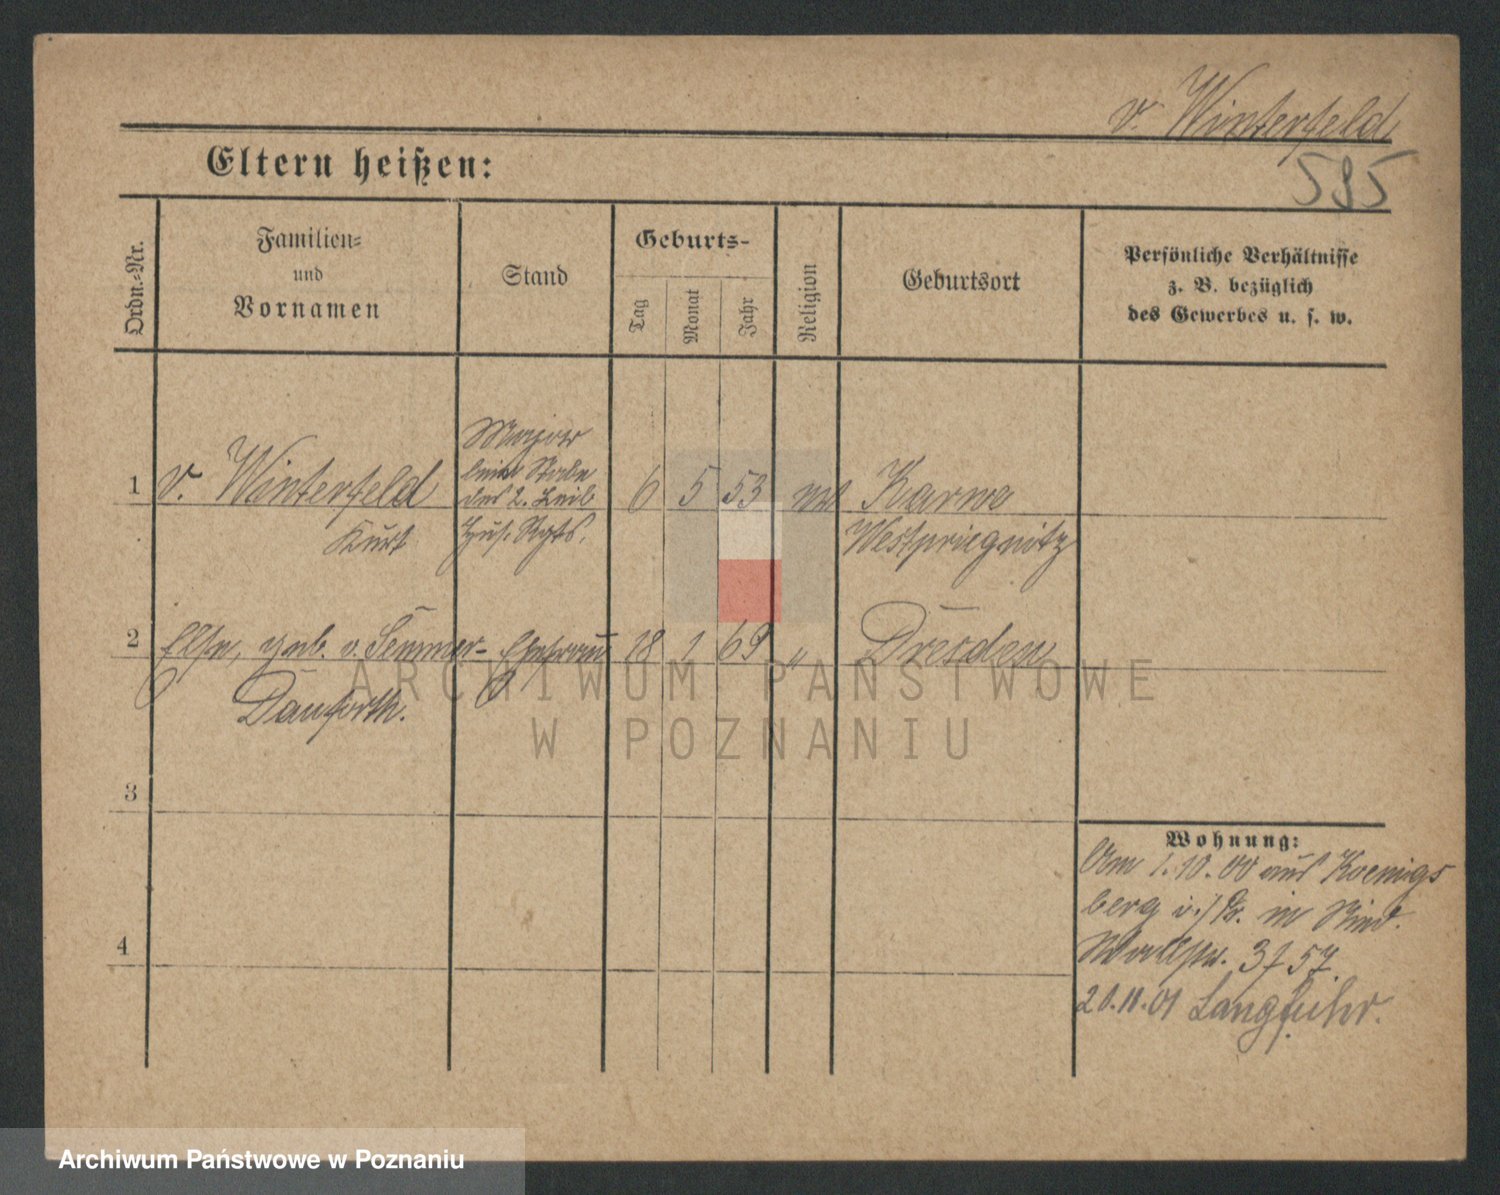 v. Winterfeld
595
Eltern heißen:
Ordn.-Nr.
Familien-
und
Vornamen
Stand
Geburts-
Tag
Monat
Jahr
Religion
Geburtsort
Persönliche Verhältnisse
z. B. bezüglich
des Gewerbes u. s. w.
1
v. Winterfeld
Kurt
Major
beim Stabe
des 2. Leib
Hus. Rgts.
6
5
53
Karwe
Westpriegnitz
2
Else, geb. v. Semmer-
Danforth.
Ehefrau
18
1
69
"
Dresden
3
4
Wohnung:
Am 1.10.00 aus Koenigs
berg i./Pr. in
Wallstr. 57.
20.11.01 Langfuhr.
ARCHIWUM PAŃSTWOWE
W POZNANIU
Archiwum Państwowe w Poznaniu